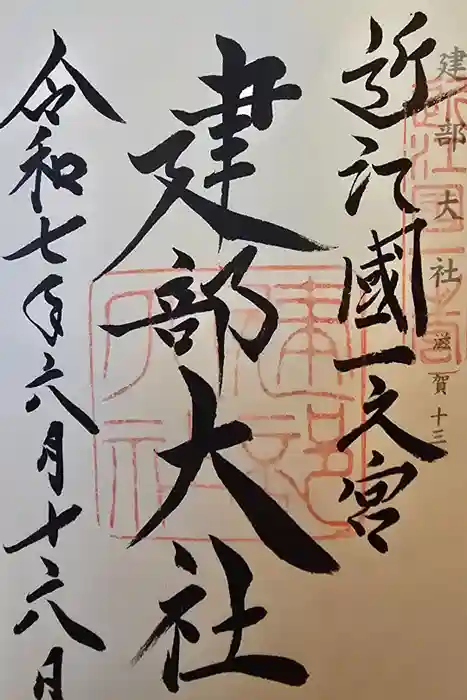 建部大社 滋賀十三
近江國一之宮
建部大社
令和七年六月十六日
近江國一之宮
建部大社